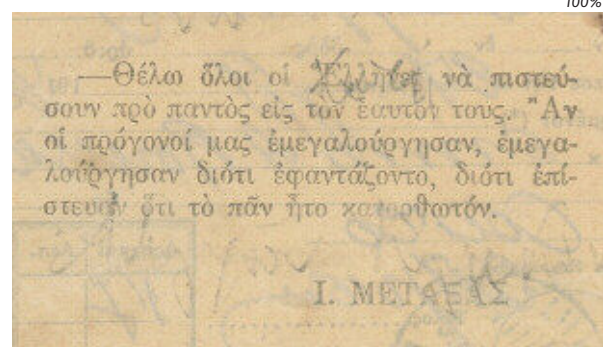 100%
—Θέλω ὅλοι οἱ Ἕλληνες νὰ πιστεύ-
σουν πρὸ παντὸς εἰς τὸν ἑαυτόν τους. Ἂν
οἱ πρόγονοί μας ἐμεγαλούργησαν, ἐμεγα-
λούργησαν διότι ἐφαντάζοντο, διότι ἐπί-
στευαν ὅτι τὸ πᾶν ἦτο κατορθωτόν.
Ι. ΜΕΤΑΞΑΣ